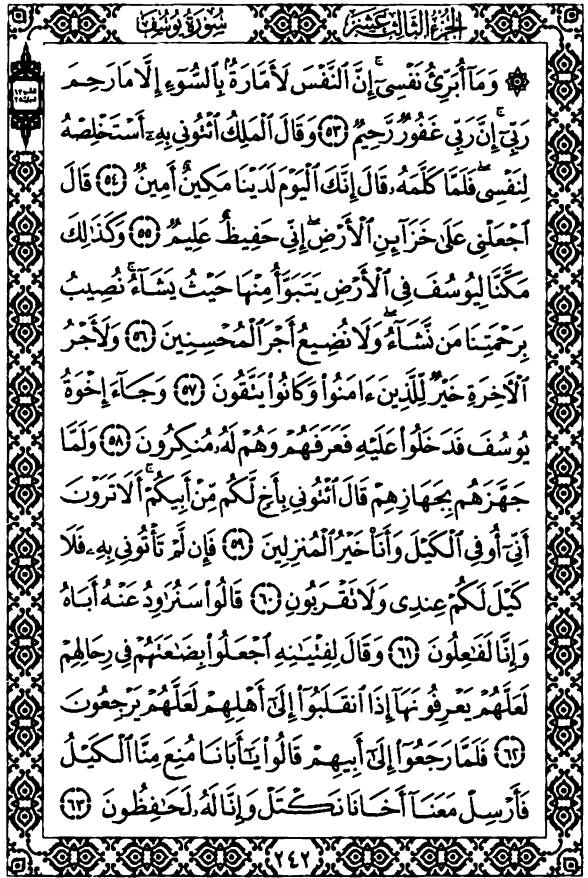 الجزء الثالث عشر
سورة يوسف
۞ وَمَآ أُبَرِّئُ نَفْسِىٓ ۚ إِنَّ ٱلنَّفْسَ لَأَمَّارَةٌۢ بِٱلسُّوٓءِ إِلَّا مَا رَحِمَ
رَبِّىٓ ۚ إِنَّ رَبِّى غَفُورٌ رَّحِيمٌ ٥٣ وَقَالَ ٱلْمَلِكُ ٱئْتُونِى بِهِۦٓ أَسْتَخْلِصْهُ
لِنَفْسِى ۖ فَلَمَّا كَلَّمَهُۥ قَالَ إِنَّكَ ٱلْيَوْمَ لَدَيْنَا مَكِينٌ أَمِينٌ ٥٤ قَالَ
ٱجْعَلْنِى عَلَىٰ خَزَآئِنِ ٱلْأَرْضِ ۖ إِنِّى حَفِيظٌ عَلِيمٌ ٥٥ وَكَذَٰلِكَ
مَكَّنَّا لِيُوسُفَ فِى ٱلْأَرْضِ يَتَبَوَّأُ مِنْهَا حَيْثُ يَشَآءُ ۚ نُصِيبُ
بِرَحْمَتِنَا مَن نَّشَآءُ ۖ وَلَا نُضِيعُ أَجْرَ ٱلْمُحْسِنِينَ ٥٦ وَلَأَجْرُ
ٱلْـَٔاخِرَةِ خَيْرٌ لِّلَّذِينَ ءَامَنُوا۟ وَكَانُوا۟ يَتَّقُونَ ٥٧ وَجَآءَ إِخْوَةُ
يُوسُفَ فَدَخَلُوا۟ عَلَيْهِ فَعَرَفَهُمْ وَهُمْ لَهُۥ مُنكِرُونَ ٥٨ وَلَمَّا
جَهَّزَهُم بِجَهَازِهِمْ قَالَ ٱئْتُونِى بِأَخٍ لَّكُم مِّنْ أَبِيكُمْ ۚ أَلَا تَرَوْنَ
أَنِّىٓ أُوفِى ٱلْكَيْلَ وَأَنَا۠ خَيْرُ ٱلْمُنزِلِينَ ٥٩ فَإِن لَّمْ تَأْتُونِى بِهِۦ فَلَا
كَيْلَ لَكُمْ عِندِى وَلَا تَقْرَبُونِ ٦٠ قَالُوا۟ سَنُرَٰوِدُ عَنْهُ أَبَاهُ
وَإِنَّا لَفَٰعِلُونَ ٦١ وَقَالَ لِفِتْيَٰنِهِ ٱجْعَلُوا۟ بِضَٰعَتَهُمْ فِى رِحَالِهِمْ
لَعَلَّهُمْ يَعْرِفُونَهَآ إِذَا ٱنقَلَبُوٓا۟ إِلَىٰٓ أَهْلِهِمْ لَعَلَّهُمْ يَرْجِعُونَ
٦٢ فَلَمَّا رَجَعُوٓا۟ إِلَىٰٓ أَبِيهِمْ قَالُوا۟ يَٰٓأَبَانَا مُنِعَ مِنَّا ٱلْكَيْلُ
فَأَرْسِلْ مَعَنَآ أَخَانَا نَكْتَلْ وَإِنَّا لَهُۥ لَحَٰفِظُونَ ٦٣
٢٤٢